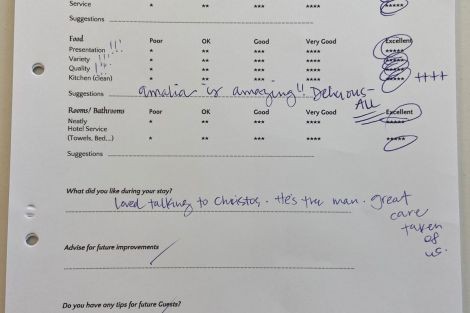 Service * ** *** **** *****
Suggestions
Food Poor OK Good Very Good Excellent
Presentation !!! * ** *** **** *****
Variety * ** *** **** *****
Quality !!! * ** *** **** *****
Kitchen (clean) * ** *** **** ***** ++++
Suggestions amalia is amazing!! Delicious - ALL
Rooms/ Bathrooms Poor OK Good Very Good Excellent
Neatly * ** *** **** *****
Hotel Service
(Towels, Bed...) * ** *** **** *****
Suggestions
What did you like during your stay?
Loved talking to Christos. He's the man. great
care
taken
of
us.
Advise for future improvements
Do you have any tips for future Guests?